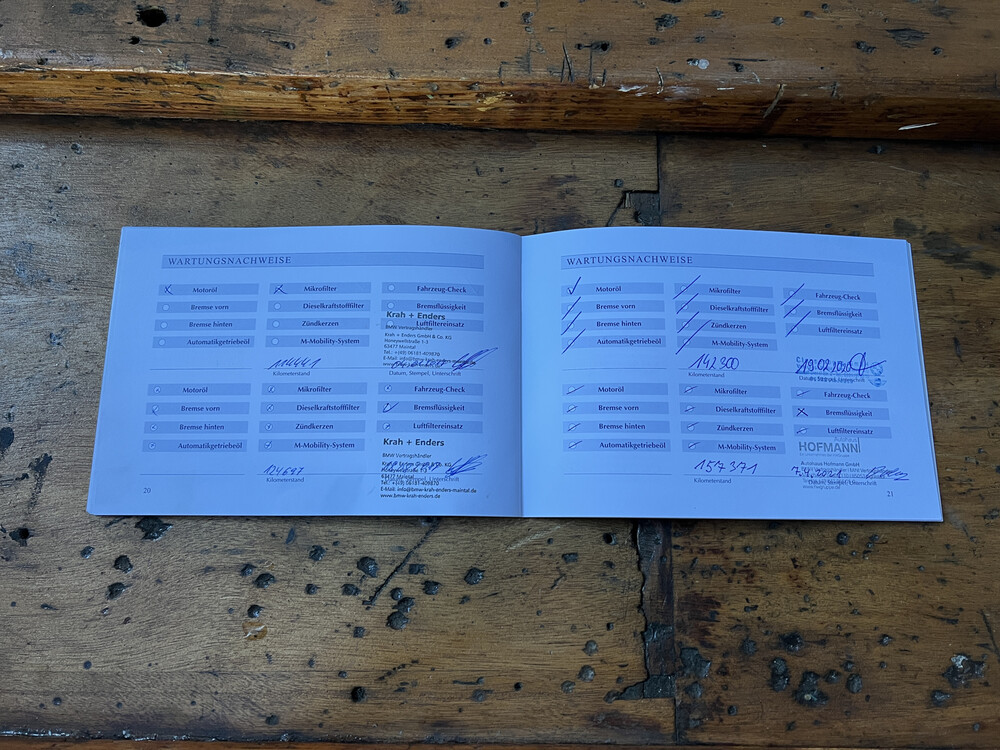 WARTUNGSNACHWEISE
Motoröl Mikrofilter Fahrzeug-Check
Bremse vorn Dieselkraftstofffilter Bremsflüssigkeit
Bremse hinten Zündkerzen Luftfiltereinsatz
Automatikgetriebeöl M-Mobility-System
Krah + Enders
BMW Vertragshändler
Krah + Enders GmbH & Co. KG
Honeywellstraße 1-3
63477 Maintal
Tel.: +(49) 06181-409870
114441
Kilometerstand Datum, Stempel, Unterschrift
Motoröl Mikrofilter Fahrzeug-Check
Bremse vorn Dieselkraftstofffilter Bremsflüssigkeit
Bremse hinten Zündkerzen Luftfiltereinsatz
Automatikgetriebeöl M-Mobility-System
Krah + Enders
BMW Vertragshändler
Krah + Enders GmbH & Co. KG
63477 Maintal
Tel.: +(49) 06181-409870
E-Mail: info@bmw-krah-enders-maintal.de
www.bmw-krah-enders.de
124697
Kilometerstand
20
WARTUNGSNACHWEISE
Motoröl Mikrofilter Fahrzeug-Check
Bremse vorn Dieselkraftstofffilter Bremsflüssigkeit
Bremse hinten Zündkerzen Luftfiltereinsatz
Automatikgetriebeöl M-Mobility-System
142300 19.02.2020
Kilometerstand
Motoröl Mikrofilter Fahrzeug-Check
Bremse vorn Dieselkraftstofffilter Bremsflüssigkeit
Bremse hinten Zündkerzen Luftfiltereinsatz
Automatikgetriebeöl M-Mobility-System
Autohaus
HOFMANN
Autohaus Hofmann GmbH
157371 7.4.2021
Kilometerstand Datum, Stempel, Unterschrift
21